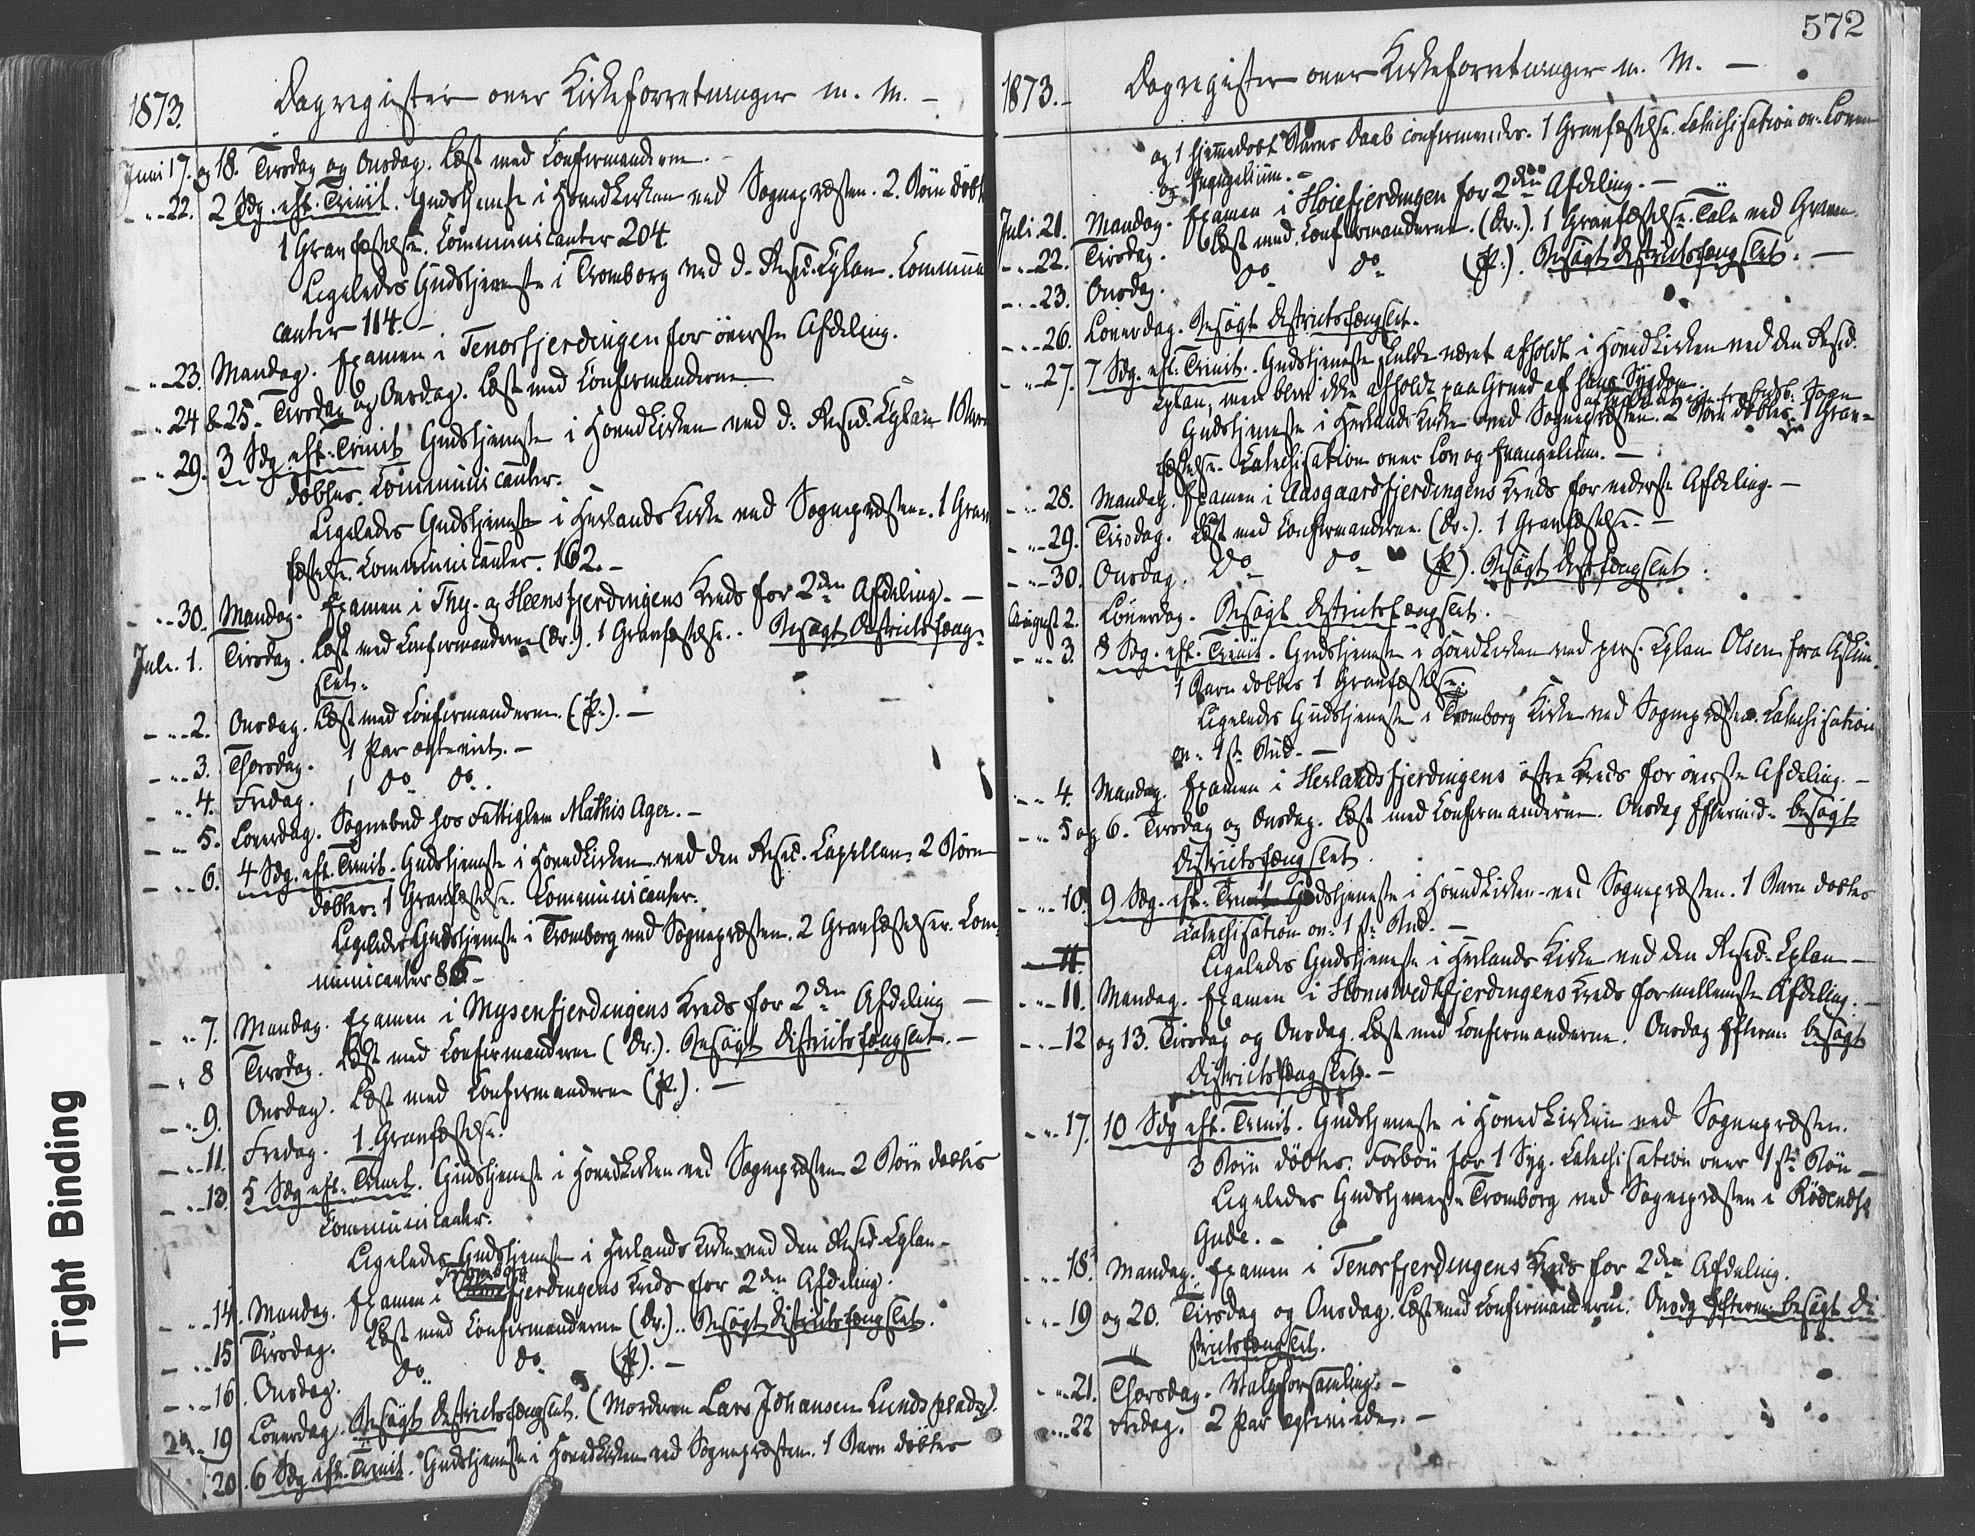 1873. Dagregister over Kirkeforretninger m. M. –
Juni 17. og 18. Tirsdag og Onsdag. Læst med Confirmanderne. –
– „ – 22. 2 Sdg. eft. Trinit. Gudstjeneste i Hovedkirken ved Sognepræsten. 2. Børn døbt
1 Gravfæstelse. Communicanter 204
Ligeledes Gudstjeneste i Tromborg ved d. Resid. Cplan. Communi
canter 114. –
– „ – 23. Mandag. Examen i Tenorfjerdingen for øverste Afdeling.
– „ – 24 & 25. Tirsdag og Onsdag. Læst med Confirmanderne. –
– „ – 29. 3 Sdg. eft. Trinit. Gudstjeneste i Hovedkirken ved d. Resid. Cplan 1 Barn
døbtes. Communicanter.
Ligeledes Gudstjeneste i Herlands Kirke ved Sognepræsten. 1 Grav
fæstelse. Communicanter. 162. –
– „ – 30. Mandag. Examen i Thy- og Heensfjerdingens Kreds for 2den Afdeling. –
Juli. 1. Tirsdag. Læst med Confirmanderne (Dr.). 1 Gravfæstelse. Besøgt Districtsfæng-
slet.
– „ – 2. Onsdag. Læst med Confirmanderne. (P.). –
– „ – 3. Thorsdag. 1 Par ægteviet. –
„ – 4. Fredag. 1 do do.
– „ – 5. Løverdag. Sognebud hos Fattiglem Mathis Ager. –
– „ – 6. 4 Sdg. eft. Trinit. Gudstjeneste i Hovedkirken ved den Resid. Capellan. 2 Børn
døbtes. 1 Gravfæstelse. Communicanter.
Ligeledes Gudstjeneste i Tromborg ved Sognepræsten. 2 Gravfæstelser. Com-
municanter 86 –
– „ – 7. Mandag. Examen i Mysenfjerdingens Kreds for 2den Afdeling –
– „ 8 Tirsdag. Læst med Confirmanderne (Dr.). Besøgt Districtsfængslet. –
– „ – 9. Onsdag. Læst med Confirmanderne (P.). –
– „ – 11. Fredag. 1 Gravfæstelse.
– „ – 13. 5 Sdg. eft. Trinit. Gudstjeneste i Hovedkirken ved Sognepræsten 2 Børn døbtes
Communicanter.
Ligeledes Gudstjeneste i Herlands Kirke ved den Resid. Cplan –
– „ – 14. Mandag. Examen i Tromborgfjerdingens Kreds for 2den Afdeling.
– „ – 15 Tirsdag. Læst med Confirmanderne (Dr.). Besøgt Districtsfængslet.
– „ – 16. Onsdag. do do. (P.). –
– „ – 19 Løverdag. Besøgt Districtsfængslet. (Morderen Lars Johansen Lundsplads).
20. 6 Sdg. eft. Trinit. Gudstjeneste i Hovedkirken ved Sognepræsten. 1 Barn døbtes
Tight Binding
572
1873. – Dagregister over Kirkeforretninger m. M. –
og 1 hjemmedøbt Barns Daab confirmeredes. 1 Gravfæstelse. Catechisation ov. Loven
og Evangelium. –
Juli 21. Mandag. Examen i Høiefjerdingen for 2den Afdeling. –
– „ – 22. Tirsdag. Læst med Confirmanderne. (Dr.). 1 Gravfæstelse. Tale ved Graven.
– „ – 23. Onsdag. do do (P.). Besøgt Districtsfængslet. –
– „ – 26. Løverdag. Besøgt Districtsfængslet.
– „ – 27. 7 Sdg. eft. Trinit. Gudstjeneste skulde været afholdt i Hovedkirken ved den Resid.
Cplan, men blev ikke afholdt paa Grund af hans Sygdom.
Gudstjeneste i Herlands Kirke ved Sognepræsten. 2 Børn døbtes. 1 Grav-
fæstelse. Catechisation over Lov og Evangelium. –
– „ – 28. Mandag. Examen i Aasgaardfjerdingens Kreds for nederste Afdeling. –
– „ – 29. Tirsdag. Læst med Confirmanderne. (Dr.). 1 Gravfæstelse. –
– „ – 30. Onsdag. do do (P.). Besøgt Distrfængslet.
August 2. Løverdag. Besøgt Districtsfængslet.
– „ – 3. 8 Sdg. eft. Trinit. Gudstjeneste i Hovedkirken ved pers. Cplan Olsen fra Askim.
1 Barn døbtes 1 Gravfæstelse.
Ligeledes Gudstjeneste i Tromborg Kirke ved Sognepræsten. Catechisation
ov. 1ste Bud. –
– „ – 4. Mandag. Examen i Herlandsfjerdingens østre Kreds for øverste Afdeling. –
– „ – 5 og 6. Tirsdag og Onsdag. Læst med Confirmanderne. Onsdag Eftermid. besøgt
Districtsfængslet.
– „ – 10. 9 Sdg. eft. Trinit. Gudstjeneste i Hovedkirken ved Sognepræsten. 1 Barn døbtes
Catechisation ov. 1ste Bud. –
11. Ligeledes Gudstjeneste i Herlands Kirke ved den Resid. Cplan –
– „ – 11. Mandag. Examen i Homstvedtfjerdingens Kreds for mellemste Afdeling. –
– „ – 12 og 13. Tirsdag og Onsdag. Læst med Confirmanderne. Onsdag Efterm. besøgt
Districtsfængslet. –
– „ – 17. 10 Sdg. eft. Trinit. Gudstjeneste i Hovedkirken ved Sognepræsten.
3 Børn døbtes. Forbøn for 1 Syg. Catechisation over 1ste Bøn –
Ligeledes Gudstjeneste Tromborg ved Sognepræsten i Rødenæs
Gude. –
– „ – 18. Mandag. Examen i Tenorfjerdingens Kreds for 2den Afdeling.
– „ – 19 og 20. Tirsdag og Onsdag. Læst med Confirmanderne. Onsdg Efterm. besøgt Di
strictsfængslet.
– „ – 21. Thorsdag. Valgforsamling. –
– „ – 22 Fredag. 2 Par ægteviede. –